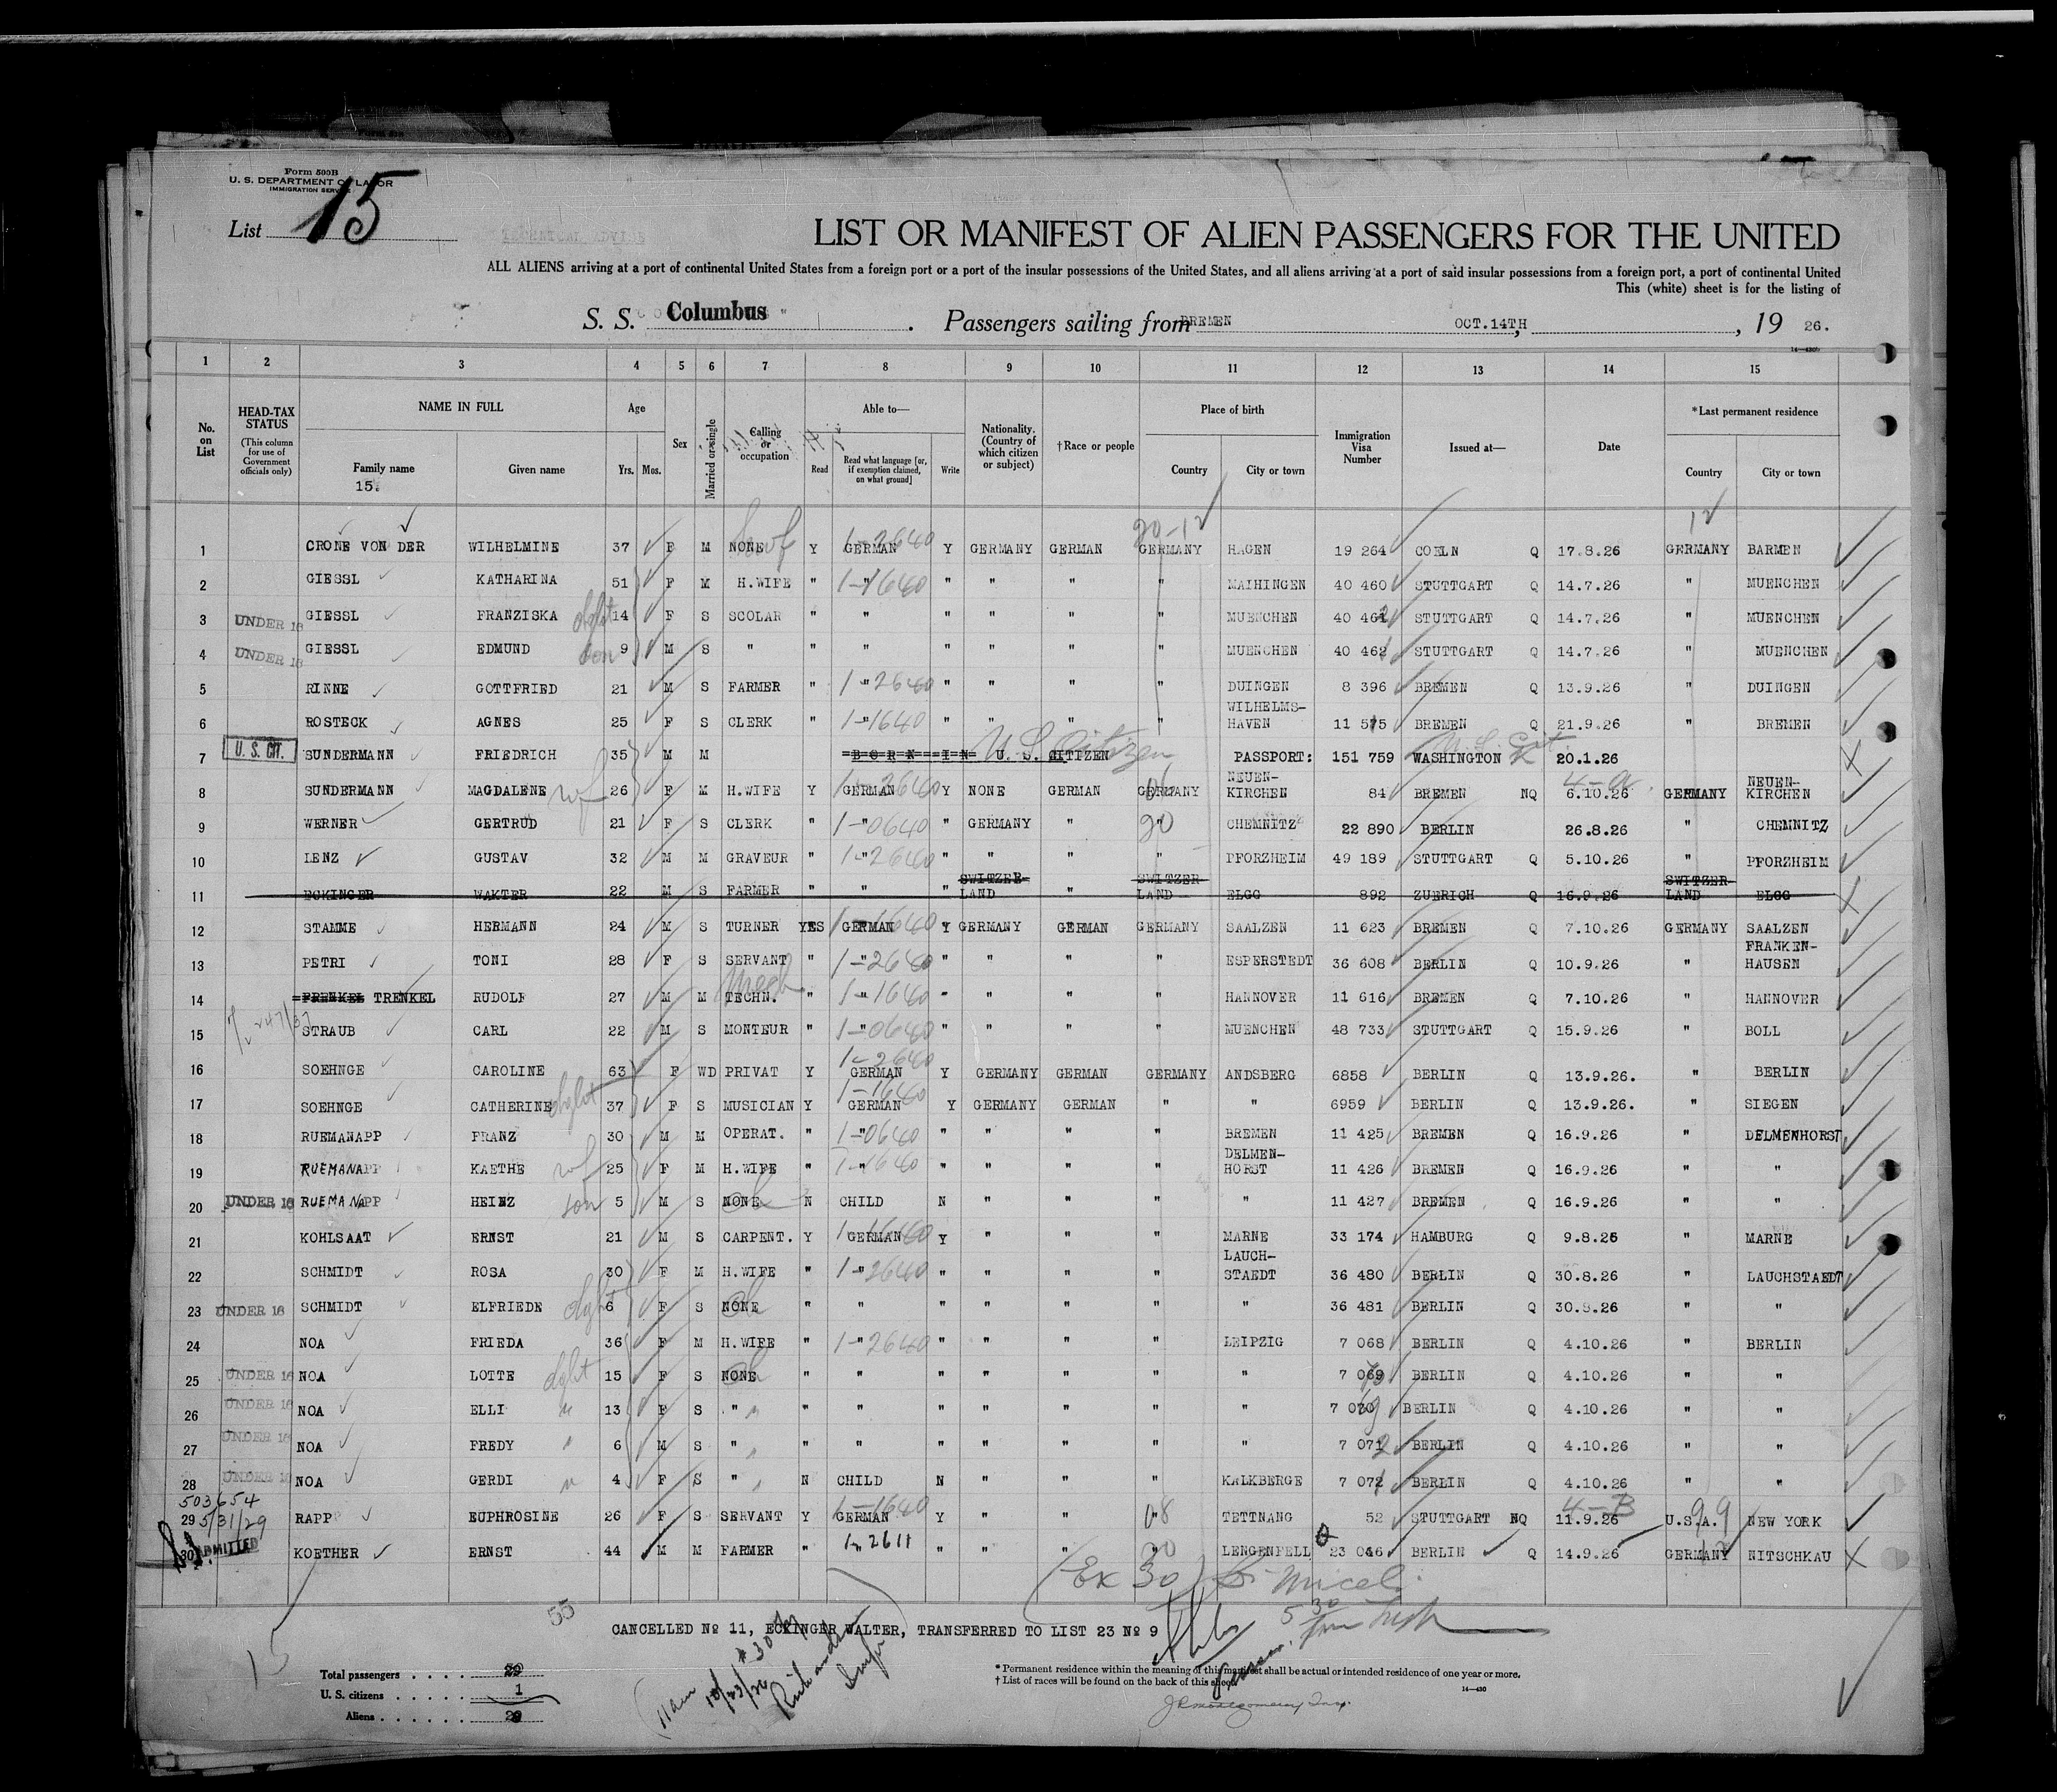 Form 500B
U. S. DEPARTMENT OF LABOR
IMMIGRATION SERVICE
List 15
TECHNICAL ADVISE
LIST OR MANIFEST OF ALIEN PASSENGERS FOR THE UNITED
ALL ALIENS arriving at a port of continental United States from a foreign port or a port of the insular possessions of the United States, and all aliens arriving at a port of said insular possessions from a foreign port, a port of continental United
This (white) sheet is for the listing of
S. S. Columbus " . Passengers sailing from BREMEN OCT.14TH , 19 26.
14—430
1 2 3 4 5 6 7 8 9 10 11 12 13 14 15
No. on List
HEAD-TAX STATUS (This column for use of Government officials only)
NAME IN FULL
Family name 15.
Given name
Age
Yrs. Mos.
Sex
Married or single
Calling or occupation
Able to—
Read
Read what language [or, if exemption claimed, on what ground]
Write
Nationality. (Country of which citizen or subject)
†Race or people
Place of birth
Country City or town
Immigration Visa Number
Issued at—
Date
*Last permanent residence
Country City or town
20-12 12
1 CRONE VON DER WILHELMINE 37 F M NONE Y GERMAN 1-2640 Y GERMANY GERMAN GERMANY HAGEN 19 264 COELN Q 17.8.26 GERMANY BARMEN
2 GIESSL KATHARINA 51 F M H.WIFE " " 1-1640 " " " " MAIHINGEN 40 460 STUTTGART Q 14.7.26 " MUENCHEN
3 UNDER 16 GIESSL FRANZISKA dght 14 F S SCOLAR " " " " " " MUENCHEN 40 462 STUTTGART Q 14.7.26 " MUENCHEN
4 UNDER 16 GIESSL EDMUND son 9 M S " " " " " " " MUENCHEN 40 461 STUTTGART Q 14.7.26 " MUENCHEN
5 RINNE GOTTFRIED 21 M S FARMER " " 1-2640 " " " " DUINGEN 8 396 BREMEN Q 13.9.26 " DUINGEN
6 ROSTECK AGNES 25 F S CLERK " " 1-1640 " " " " WILHELMS-HAVEN 11 515 BREMEN Q 21.9.26 " BREMEN
7 U. S. CIT. SUNDERMANN FRIEDRICH 35 M M BORN IN U. S. CITIZEN U S Citizen PASSPORT: 151 759 WASHINGTON U. S. Cit. 20.1.26
8 SUNDERMANN MAGDALENE wf 26 F M H.WIFE Y GERMAN 1-2640 Y NONE GERMAN GERMANY NEUEN-KIRCHEN 84 BREMEN NQ 4-a 6.10.26 GERMANY NEUEN-KIRCHEN
9 WERNER GERTRUD 21 F S CLERK " " 1-0640 " GERMANY " " 20 CHEMNITZ 22 890 BERLIN 26.8.26 " CHEMNITZ
10 LENZ GUSTAV 32 M M GRAVEUR " " 1-2640 " " " " PFORZHEIM 49 189 STUTTGART Q 5.10.26 " PFORZHEIM
11 ECKINGER WAKTER 22 M S FARMER " " " SWITZER-LAND " SWITZER-LAND ELGG 892 ZUERICH Q 16.9.26 SWITZER-LAND ELGG
12 STAMME HERMANN 24 M S TURNER YES GERMAN 1-1640 Y GERMANY GERMAN GERMANY SAALZEN 11 623 BREMEN Q 7.10.26 GERMANY SAALZEN
13 PETRI TONI 28 F S SERVANT " " 1-2640 " " " " ESPERSTEDT 36 608 BERLIN Q 10.9.26 " FRANKEN-HAUSEN
14 FRENKEL TRENKEL RUDOLF 27 M M TECHN. Mech " " 1-1640 " " " " HANNOVER 11 616 BREMEN Q 7.10.26 " HANNOVER
15 STRAUB CARL 22 M S MONTEUR " " 1-0640 " " " " MUENCHEN 48 733 STUTTGART Q 15.9.26 " BOLL
16 SOEHNGE CAROLINE 63 F WD PRIVAT Y 1-2640 GERMAN Y GERMANY GERMAN GERMANY ANDSBERG 6858 BERLIN Q 13.9.26. " BERLIN
17 SOEHNGE CATHERINE dght 37 F S MUSICIAN Y 1-1640 GERMAN Y GERMANY GERMAN " " 6959 BERLIN Q 13.9.26. " SIEGEN
18 RUEMANAPP FRANZ 30 M M OPERAT. " " 1-0640 " " " " BREMEN 11 425 BREMEN Q 16.9.26 " DELMENHORST
19 RUEMANAPP KAETHE wf 25 F M H.WIFE " " 1-1640 " " " " DELMEN-HORST 11 426 BREMEN Q 16.9.26 " "
20 UNDER 16 RUEMANAPP HEINZ son 5 M S NONE ch N CHILD N " " " " 11 427 BREMEN Q 16.9.26 " "
21 KOHLSAAT ERNST 21 M S CARPENT. Y GERMAN 1-1640 Y " " " MARNE 33 174 HAMBURG Q 9.8.26 " MARNE
22 SCHMIDT ROSA 30 F M H.WIFE " " 1-2640 " " " " LAUCH-STAEDT 36 480 BERLIN Q 30.8.26 " LAUCHSTAEDT
23 UNDER 16 SCHMIDT ELFRIEDE dght 6 F S NONE ch " " " " " " " 36 481 BERLIN Q 30.8.26 " "
24 NOA FRIEDA 36 F M H.WIFE " " 1-2640 " " " " LEIPZIG 7 068 BERLIN Q 4.10.26 " BERLIN
25 UNDER 16 NOA LOTTE dght 15 F S NONE ch " " " " " " " 7 069 BERLIN Q 4.10.26 " "
26 UNDER 16 NOA ELLI " 13 F S " " " " " " " " 7 070 BERLIN Q 4.10.26 " "
27 UNDER 16 NOA FREDY " 6 M S " " " " " " " " 7 072 BERLIN Q 4.10.26 " "
28 UNDER 16 NOA GERDI " 4 F S " N CHILD N " " " KALKBERGE 7 071 BERLIN Q 4.10.26 " "
503654
29 5/31/29 RAPP EUPHROSINE 26 F S SERVANT Y GERMAN 1-1640 Y " " " 08 TETTNANG 52 STUTTGART NQ 4-B 11.9.26 U.S.A. 99 NEW YORK
30 ADMITTED KOETHER ERNST 44 M M FARMER " " 1-2611 " " " " 20 LENGENFELL 23 046 BERLIN Q 14.9.26 GERMANY 12 NITSCHKAU
(Ex 30)
55
CANCELLED No 11, ECKINGER WALTER, TRANSFERRED TO LIST 23 No 9
15
(11am 10/23/26 #30
Total passengers . . . .
U. S. citizens . . . . . 1
Aliens . . . . . .
* Permanent residence within the meaning of this manifest shall be actual or intended residence of one year or more.
† List of races will be found on the back of this sheet.
14—430